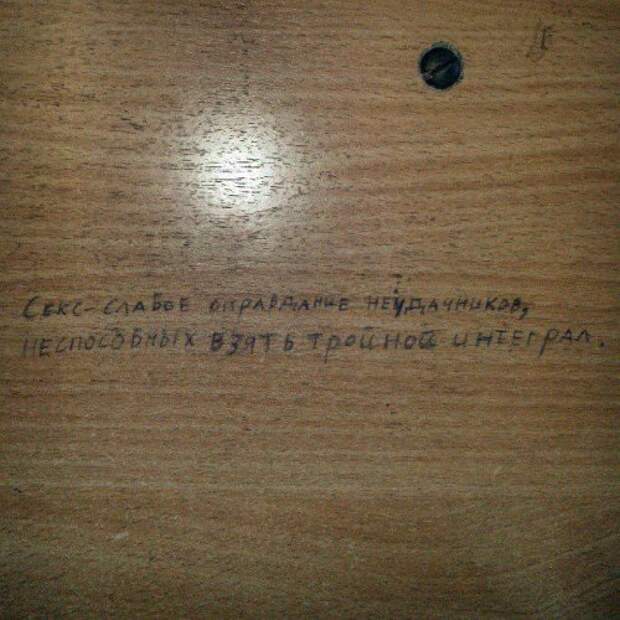 Секс-слабое оправдание неудачников,
неспособных взять тройной интеграл.